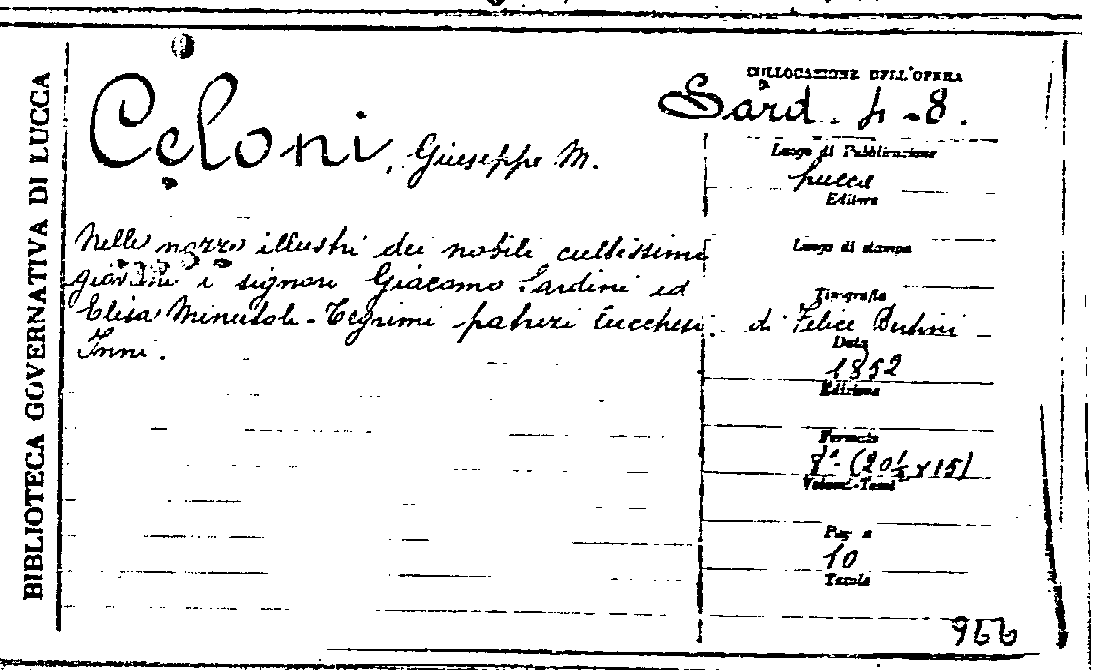 BIBLIOTECA GOVERNATIVA DI LUCCA
Celoni, Giuseppe M.
Nelle nozze illustri dei nobili cultissimi
giovani i signori Giacomo Sardini ed
Elisa Minutoli-Tegrimi patrizi lucchesi.
Inni.
COLLOCAZIONE DELL'OPERA
Sard. 4-8.
Luogo di Pubblicazione
Lucca
Editore
Luogo di stampa
Tipografia
di Felice Bertini
Data
1852
Edizione
Formato
8º- (20½x15)
Volumi-Tomi
Pag
10
Tavole
966